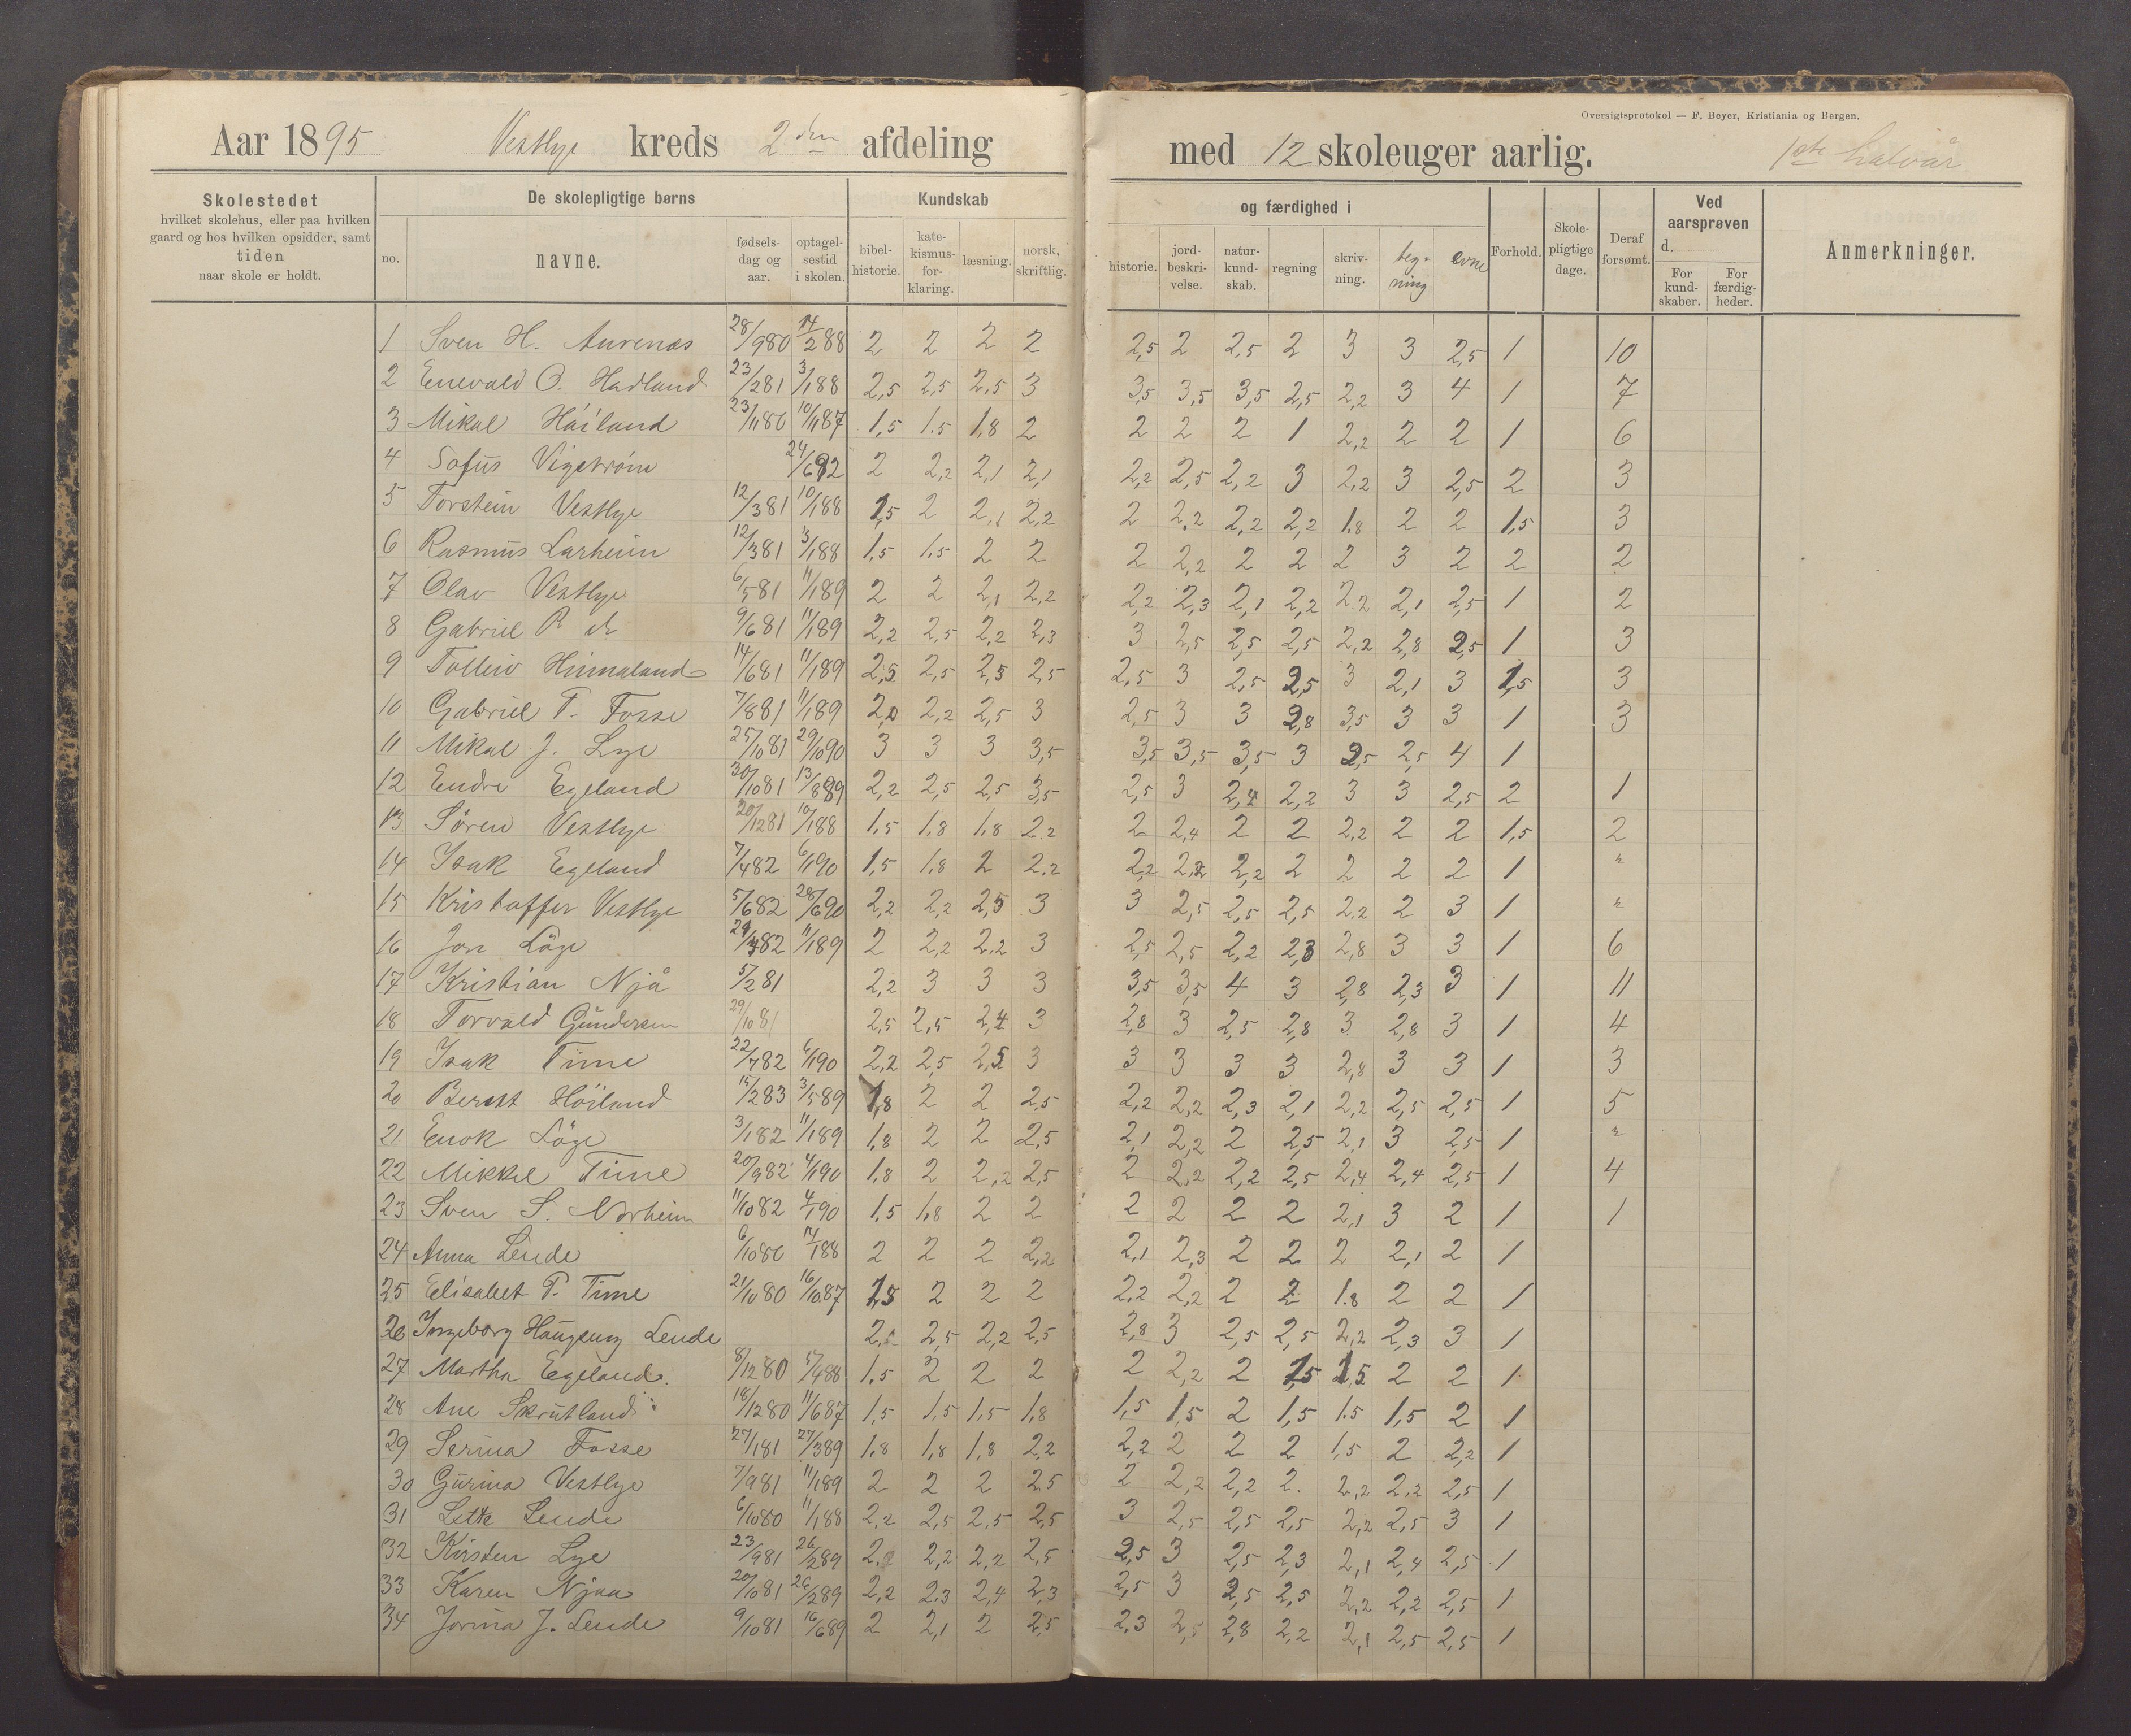 Oversigtsprotokol — F. Beyer, Kristiania og Bergen.
Aar 1895 Vestlye kreds 2den afdeling med 12 skoleuger aarlig. 1ste halvår
Skolestedet
hvilket skolehus, eller paa hvilken
gaard og hos hvilken opsidder, samt
tiden
naar skole er holdt.
De skolepligtige børns
no. navne. fødsels-dag og aar. optagel-sestid i skolen.
Kundskab og færdighed i
bibel-historie. kate-kismus-for-klaring. læsning. norsk, skriftlig. historie. jord-beskri-velse. natur-kund-skab. regning skriv-ning. evne
Forhold. Skole-pligtige dage. Deraf forsømt.
Ved aarsprøven d.
For kund-skaber. For færdig-heder.
Anmerkninger.
1 Sven H. Aurenes 28/9 80 14/2 88 2 2 2 2 2,5 2 2,5 2 3 3 2,5 1 10
2 Enevald O. Hadland 23/2 81 3/1 88 2,5 2,5 2,5 3 3,5 3,5 3,5 2,5 2,2 3 4 1 7
3 Mikal Höiland 23/11 80 10/11 87 1,5 1.5 1,8 2 2 2 2 1 2,2 2 2 1 6
4 Sofus Vigström 24/6 92 2 2,2 2,1 2,1 2,2 2,5 2,2 3 2,2 3 2,5 2 3
5 Torstein Vestlye 12/3 81 10/1 88 1,5 2 2,1 2,2 2 2,2 2,2 2,2 1,8 2 2 1,5 3
6 Rasmus Larheim 12/3 81 3/1 88 1,5 1,5 2 2 2 2,2 2 2 2 3 2 2 2
7 Olav Vestlye 6/5 81 11/1 89 2 2 2,1 2,2 2,2 2,3 2,1 2,2 2.2 2,1 2,5 1 2
8 Gabriel P do 9/6 81 11/1 89 2,2 2,5 2,2 2,3 3 2,5 2,5 2,5 2,2 2,8 2,5 1 3
9 Tolleiv Hinnaland 14/6 81 11/1 89 2,5 2,5 2,5 2,5 2,5 3 2,5 2,5 3 2,1 3 1,5 3
10 Gabriel T. Fosse 7/8 81 11/1 89 2,0 2,2 2,5 3 2,5 3 3 2,8 3,5 3 3 1 3
11 Mikal J. Lye 25/10 81 29/10 90 3 3 3 3,5 3,5 3,5 3,5 3 2,5 2,5 4 1
12 Endre Egeland 30/10 81 13/8 89 2,2 2,5 2,5 3,5 2,5 3 2,4 2,2 3 3 2,5 2 1
13 Sören Vestlye 20/12 81 10/1 88 1,5 1,8 1,8 2.2 2 2,4 2 2 2,2 2 2 1,5 2
14 Isak Egeland 7/4 82 6/1 90 1,5 1,8 2 2.2 2,2 2,2 2,2 2 2 2 2 1 "
15 Kristoffer Vestlye 5/6 82 28/6 90 2,2 2,2 2,5 3 3 2,5 2,5 2,5 2,2 2 3 1 "
16 Jon Löge 29/7 82 11/1 89 2 2,2 2,2 3 2,5 2,5 2,2 2,3 2,8 3 3 1 6
17 Kristian Njå 5/2 81 2,2 3 3 3 3,5 3,5 4 3 2,8 2,3 3 1 11
18 Torvald Gundersen 29/10 81 2,5 2,5 2,4 3 2,8 3 2,5 2,8 3 2,8 3 1 4
19 Isak Time 22/7 82 6/1 90 2,2 2,5 2,5 3 3 3 3 3 2,8 3 3 1 3
20 Berent Höiland 15/2 83 3/5 89 1,8 2 2 2,5 2,2 2,2 2,3 2,1 2,2 2,5 2,5 1 5
21 Enok Löge 3/1 82 11/1 89 1,8 2 2 2,5 2,1 2,2 2 2,5 2,1 3 2,5 1 "
22 Mikkel Time 20/9 82 4/1 90 1,8 2 2,2 2,5 2 2,2 2,2 2,5 2,4 2,4 2,5 1 4
23 Sven S. Norheim 11/10 82 4/1 90 1,5 1,8 2 2 2 2 2 2 2,1 3 2 1 1
24 Anna Lende 6/10 80 14/1 88 2 2 2 2,2 2,1 2,3 2 2 2 2,1 2 1
25 Elisabet T. Time 21/10 80 16/10 87 1,5 2 2 2 2,2 2,2 2 2 1.8 2 2 1
26 Ingeborg Haugseng Lende 2,5 2,2 2,5 2,8 3 2,5 2,5 2,2 2,3 3 1
27 Martha Egeland. 8/12 80 5/4 88 1,5 2 2 2 2 2,2 2 1,5 1,5 2 2 1
28 Ane Skrutland 18/12 80 11/6 87 1,5 1,5 1,5 1,8 1,5 1,5 2 1,5 1.5 1,5 2 1
29 Serina Fosse 27/1 81 27/3 89 1,8 1,8 1,8 2,2 2,2 2 2 2 1,5 2 2,2 1
30 Gurina Vestlye 7/9 81 11/1 89 2 2 2 2,5 2 2,2 2,2 2. 2,2 2,2 2,5 1
31 Lette Lende 6/10 80 11/1 88 2,2 2,5 2,5 2,5 3 2,5 2,5 2,5 2,2 2,5 3 1
32 Kirsten Lye 23/9 81 26/2 89 2,2 2,2 2,5 2,5 3 2,5 2,3 2,1 2,4 2,5 1
33 Karen Njaa 20/10 81 26/2 89 2,2 2.3 2,4 2,3 2,5 3 2,5 2,5 2,2 2,2 2,5 1
34 Jorina J. Lende 9/10 81 16/6 89 2 2,1 2 2,5 2,3 2,5 2,8 2,2 2,1 2,5 2,5 1